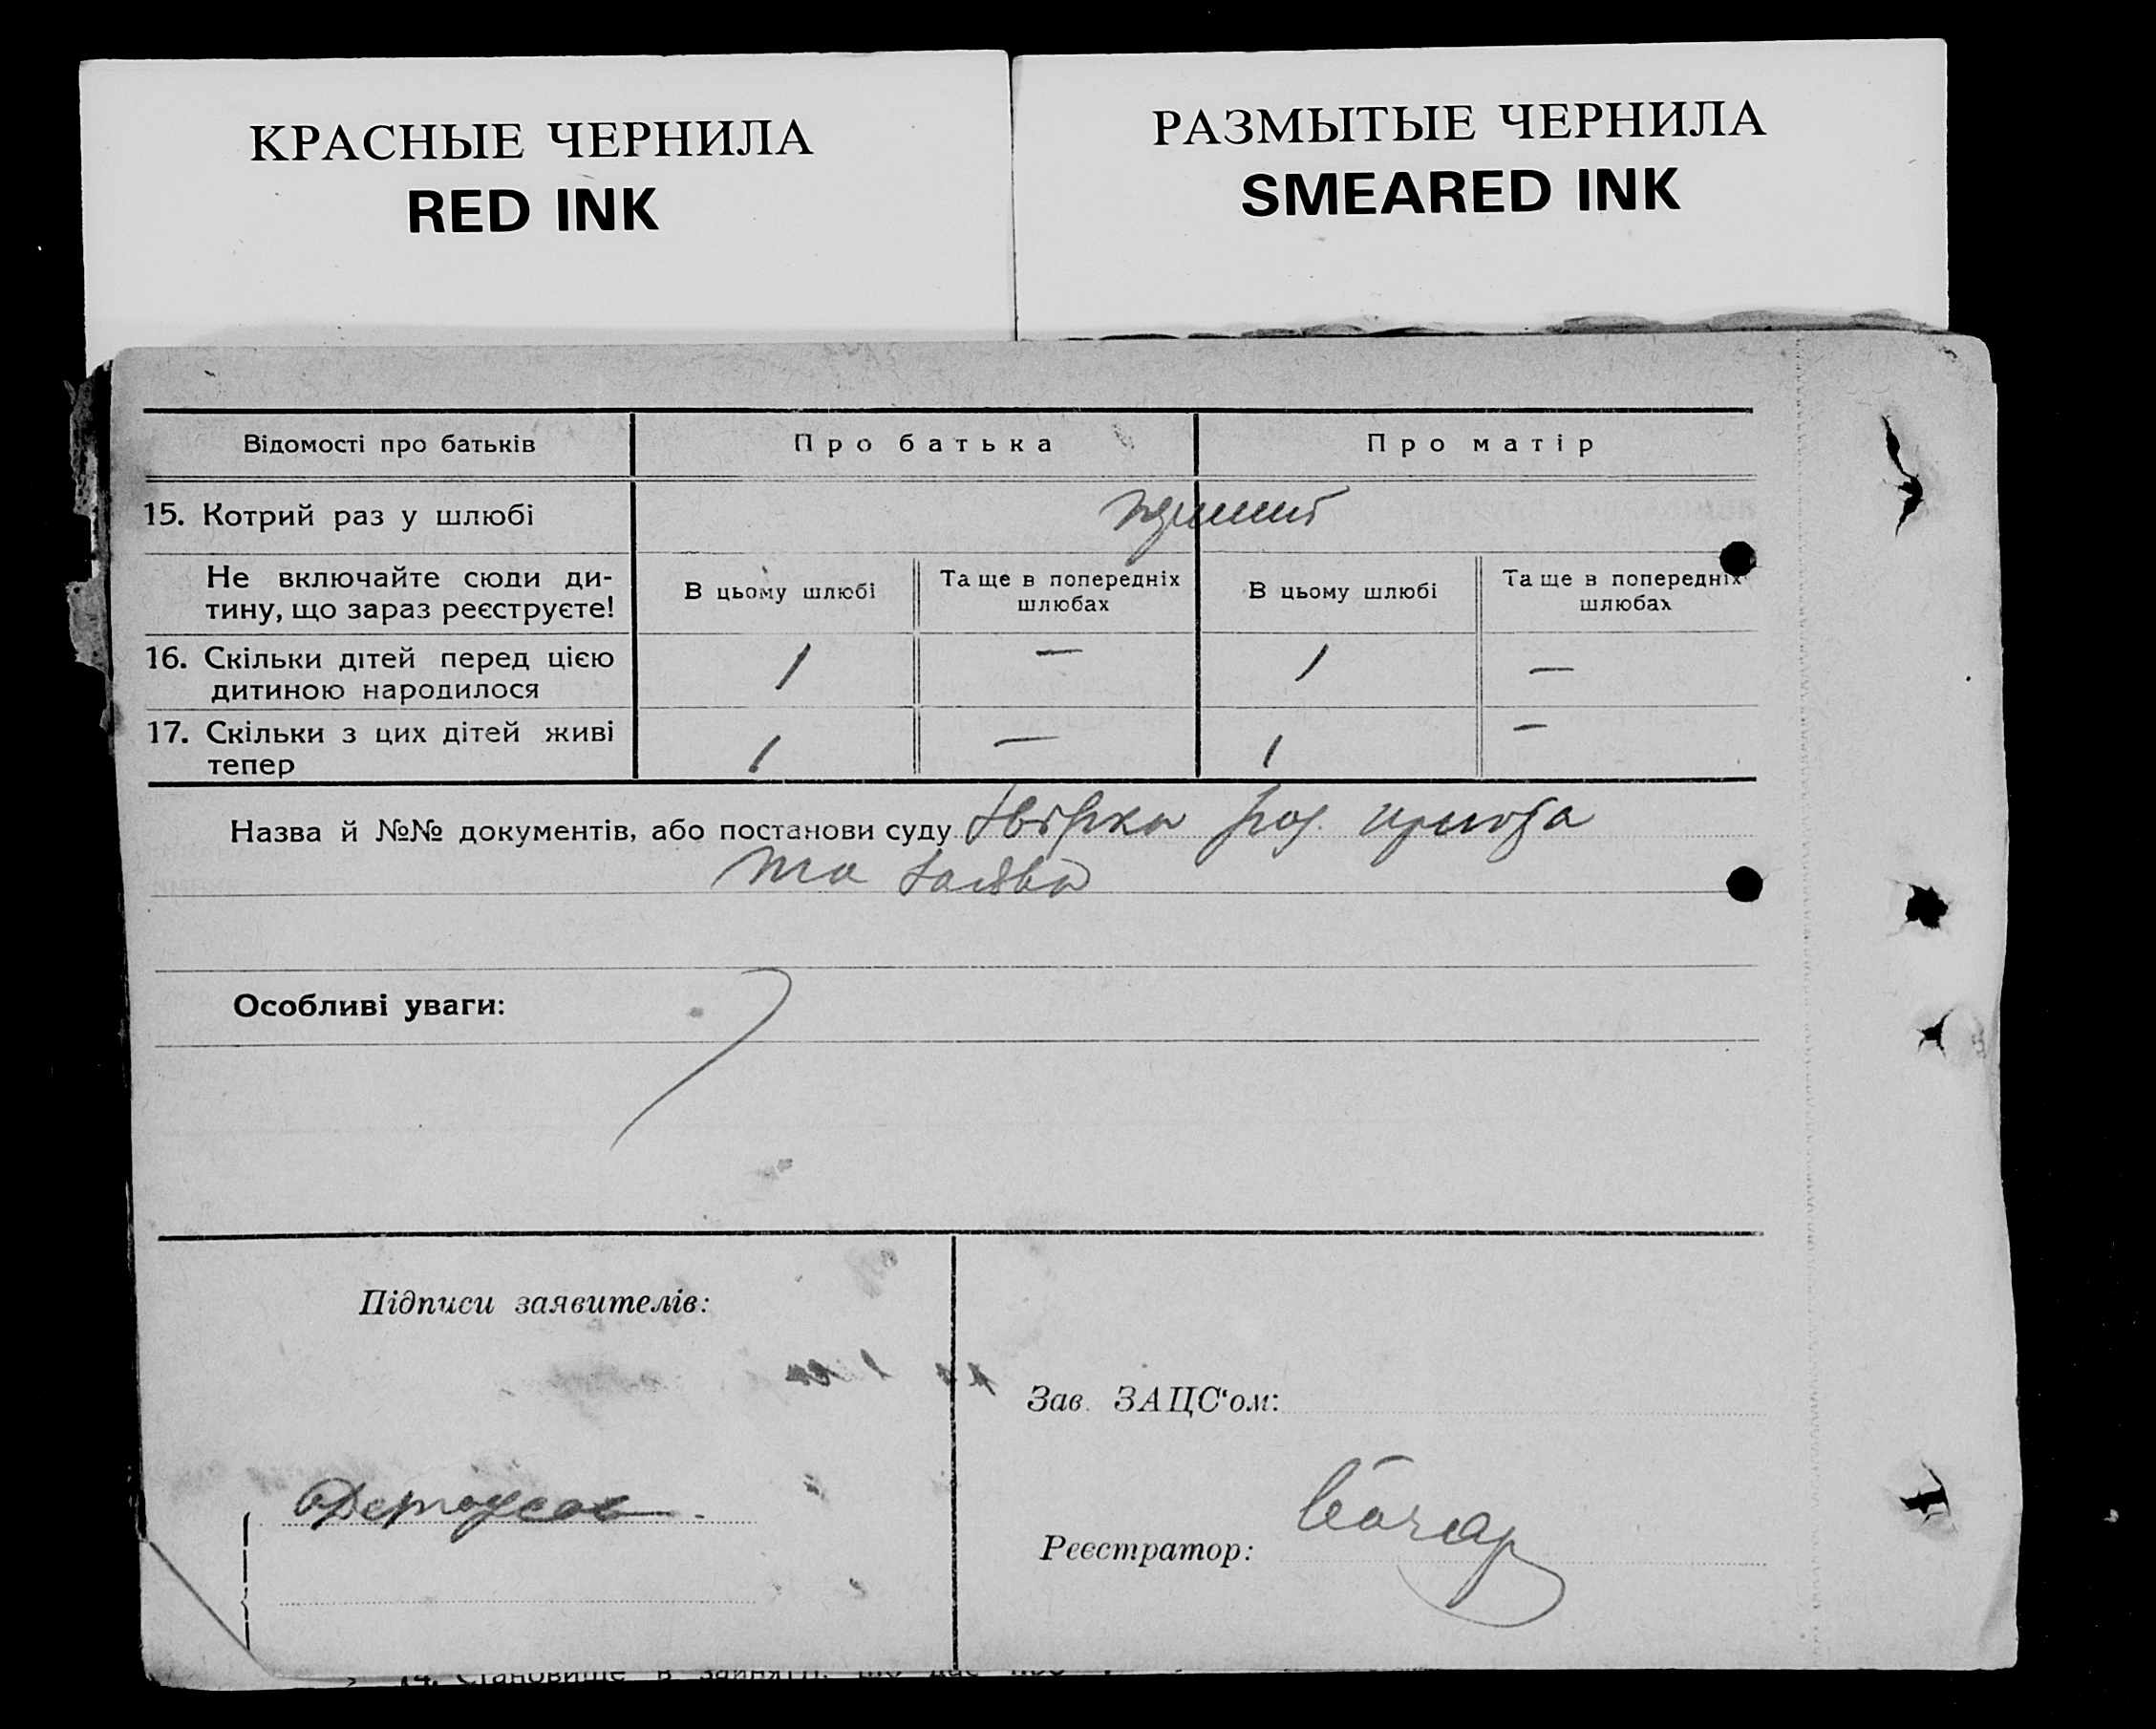 КРАСНЫЕ ЧЕРНИЛА
RED INK
РАЗМЫТЫЕ ЧЕРНИЛА
SMEARED INK
Відомості про батьків
Про батька
Про матір
15. Котрий раз у шлюбі
Не включайте сюди ди-
тину, що зараз реєструєте!
В цьому шлюбі
Та ще в попередніх
шлюбах
В цьому шлюбі
Та ще в попередніх
шлюбах
16. Скільки дітей перед цією
дитиною народилося
1 — 1 —
17. Скільки з цих дітей живі
тепер
1 — 1 —
Назва й №№ документів, або постанови суду
та заява
Особливі уваги:
Підписи заявителів:
Зав. ЗАЦС‘ом:
Реєстратор:
14. Становище в занятті, що дає